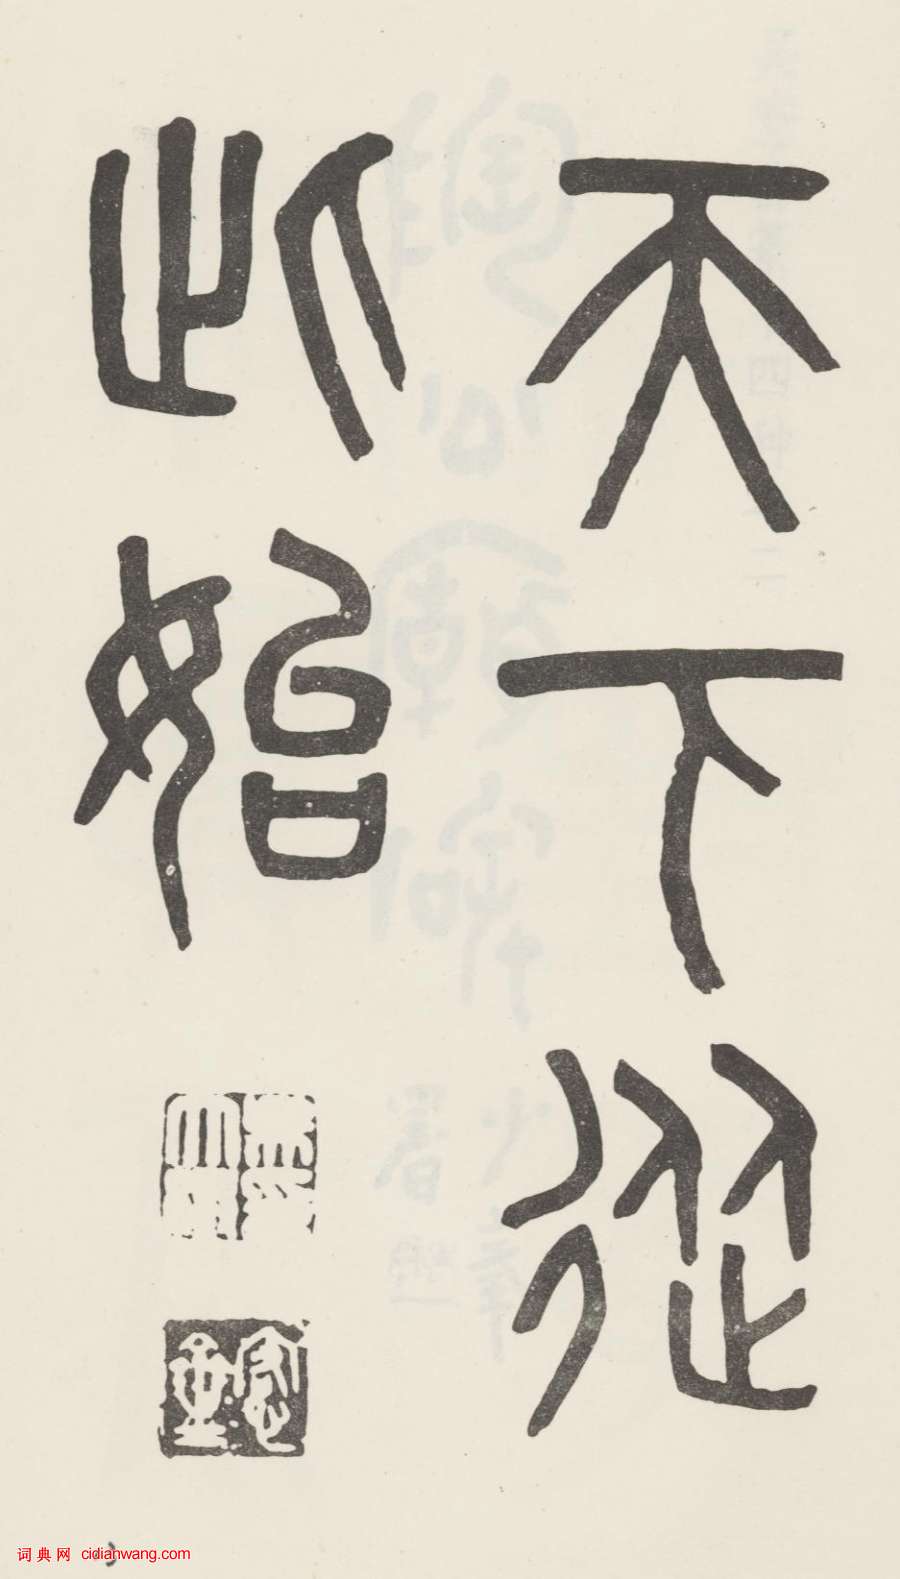 天下從
此始
词典网 cidianwang.com